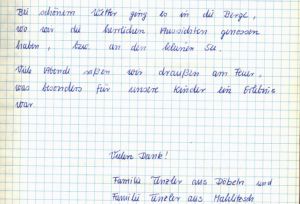 Bei schönem Wetter ging es in die Berge,
wo wir die herrlichen Aussichten genossen
haben, bzw. an den blauen See.
Viele Abende saßen wir draußen am Feuer,
was besonders für unsere Kinder ein Erlebnis
war.
Vielen Dank!
Familie Tinzler aus Döbeln und
Familie Tinzler aus